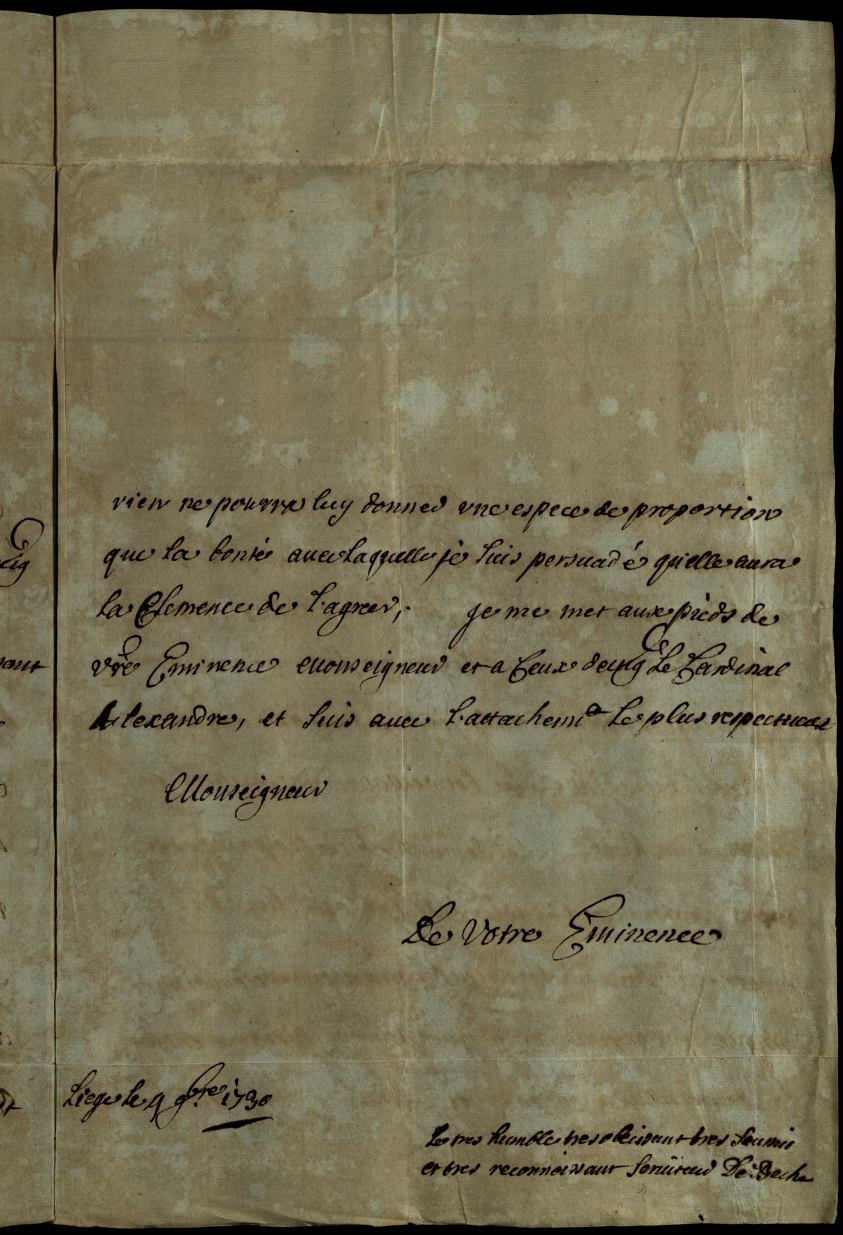 rien ne pourra luy donner une espece de proportion
que la bonté avec laquelle je suis persuadé qu'elle aura
la Clemence de l'agreer, je me met aux pieds de
vre Eminence Monseigneur et a Ceux de Mgr Le Cardinal
Alexandre, et suis avec l'attachemt Le plus respectueux
Monseigneur
De Votre Eminence
Liege le 9 9bre 1730
Le tres humble tres obeissant tres soumis
et tres reconnoissant serviteur